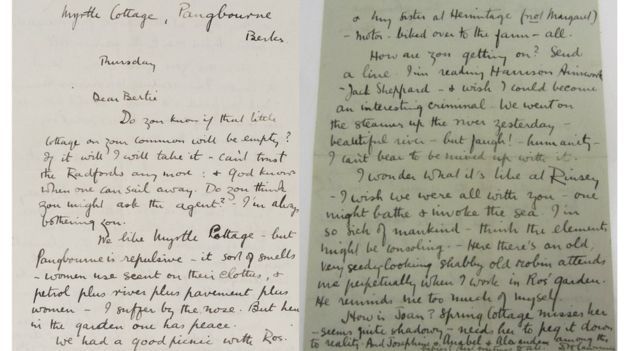 Myrtle Cottage, Pangbourne
Berks
Thursday
Dear Bertie
Do you know if that little
cottage on your common will be empty?
If it will I will take it - can't trust
the Radfords any more: & God knows
when one can sail away. Do you think
you might ask the agent? I'm always
bothering you.
We like Myrtle Cottage - but
Pangbourne is repulsive - it sort of smells
- women use scent on their clothes, &
petrol plus river plus pavement plus
women - I suffer by the nose. But here
in the garden one has peace.
We had a good picnic with Ros.
& my sister at Hermitage (not Margaret)
- motor - biked over to the farm - all.
How are you getting on? Send
a line. I'm reading Harrison Ainsworth
- Jack Sheppard - & wish I could become
an interesting criminal. We went on
the steamer up the river yesterday -
beautiful river - but faugh! - humanity -
I can't bear to be mixed up with it.
I wonder what it's like at Rinsey
- I wish we were all with you - one
might bathe & invoke the sea. I'm
so sick of mankind - think the elements
might be consoling. - Here there's an old,
very seedy-looking shabby old robin attends
me perpetually when I work in Ros' garden.
He reminds me too much of myself.
How is Joan? Spring Cottage misses her
- seems quite shadowy - need her to peg it down
to reality. And Josephine & Anabel & Alexander among the